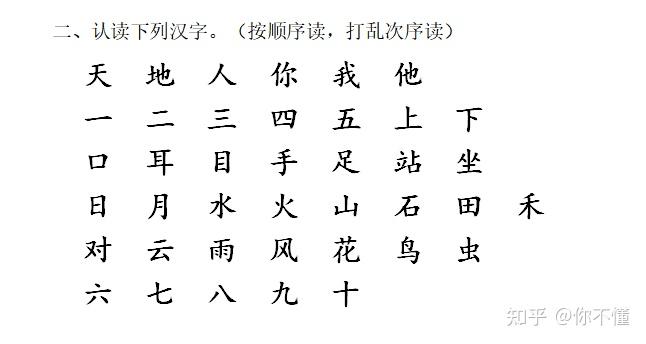 二、认读下列汉字。（按顺序读，打乱次序读）
天 地 人 你 我 他
一 二 三 四 五 上 下
口 耳 目 手 足 站 坐
日 月 水 火 山 石 田 禾
对 云 雨 风 花 鸟 虫
六 七 八 九 十
知乎 @你不懂